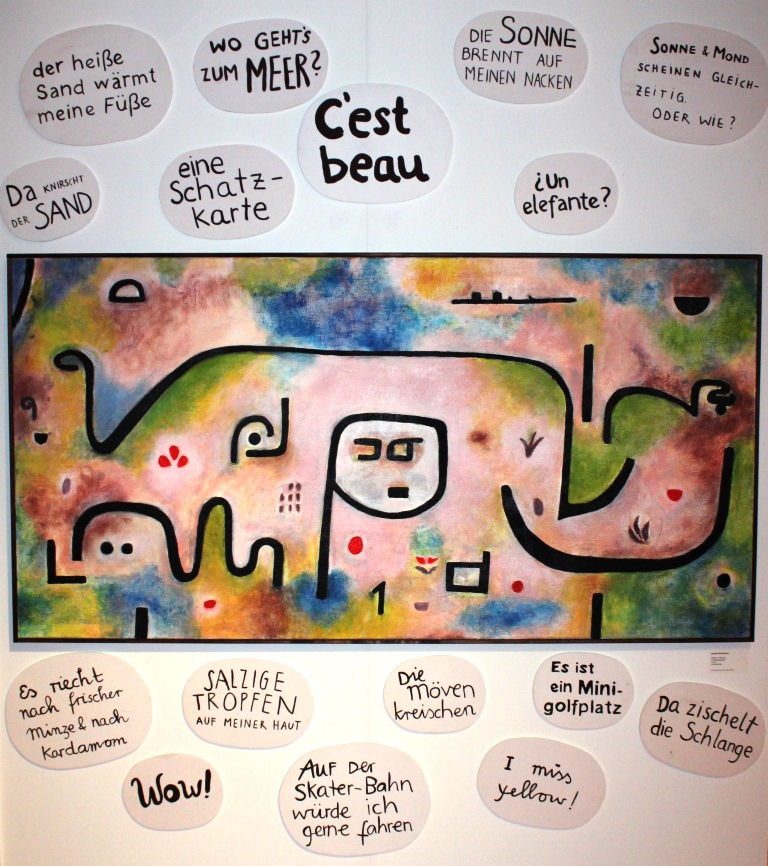 der heiße
Sand wärmt
meine Füße
WO GEHT'S
ZUM MEER?
DIE SONNE
BRENNT AUF
MEINEN NACKEN
SONNE & MOND
SCHEINEN GLEICH-
ZEITIG.
ODER WIE?
C'est
beau
Da KNIRSCHT
DER SAND
eine
Schatz-
karte
¿Un
elefante?
Es riecht
nach frischer
Minze & nach
Kardamom
SALZIGE
TROPFEN
AUF MEINER HAUT
Die
Möven
kreischen
Es ist
ein Mini-
golfplatz
Da zischelt
die Schlange
Wow!
AUF DER
SKATER-BAHN
würde ich
gerne fahren
I miss
yellow!